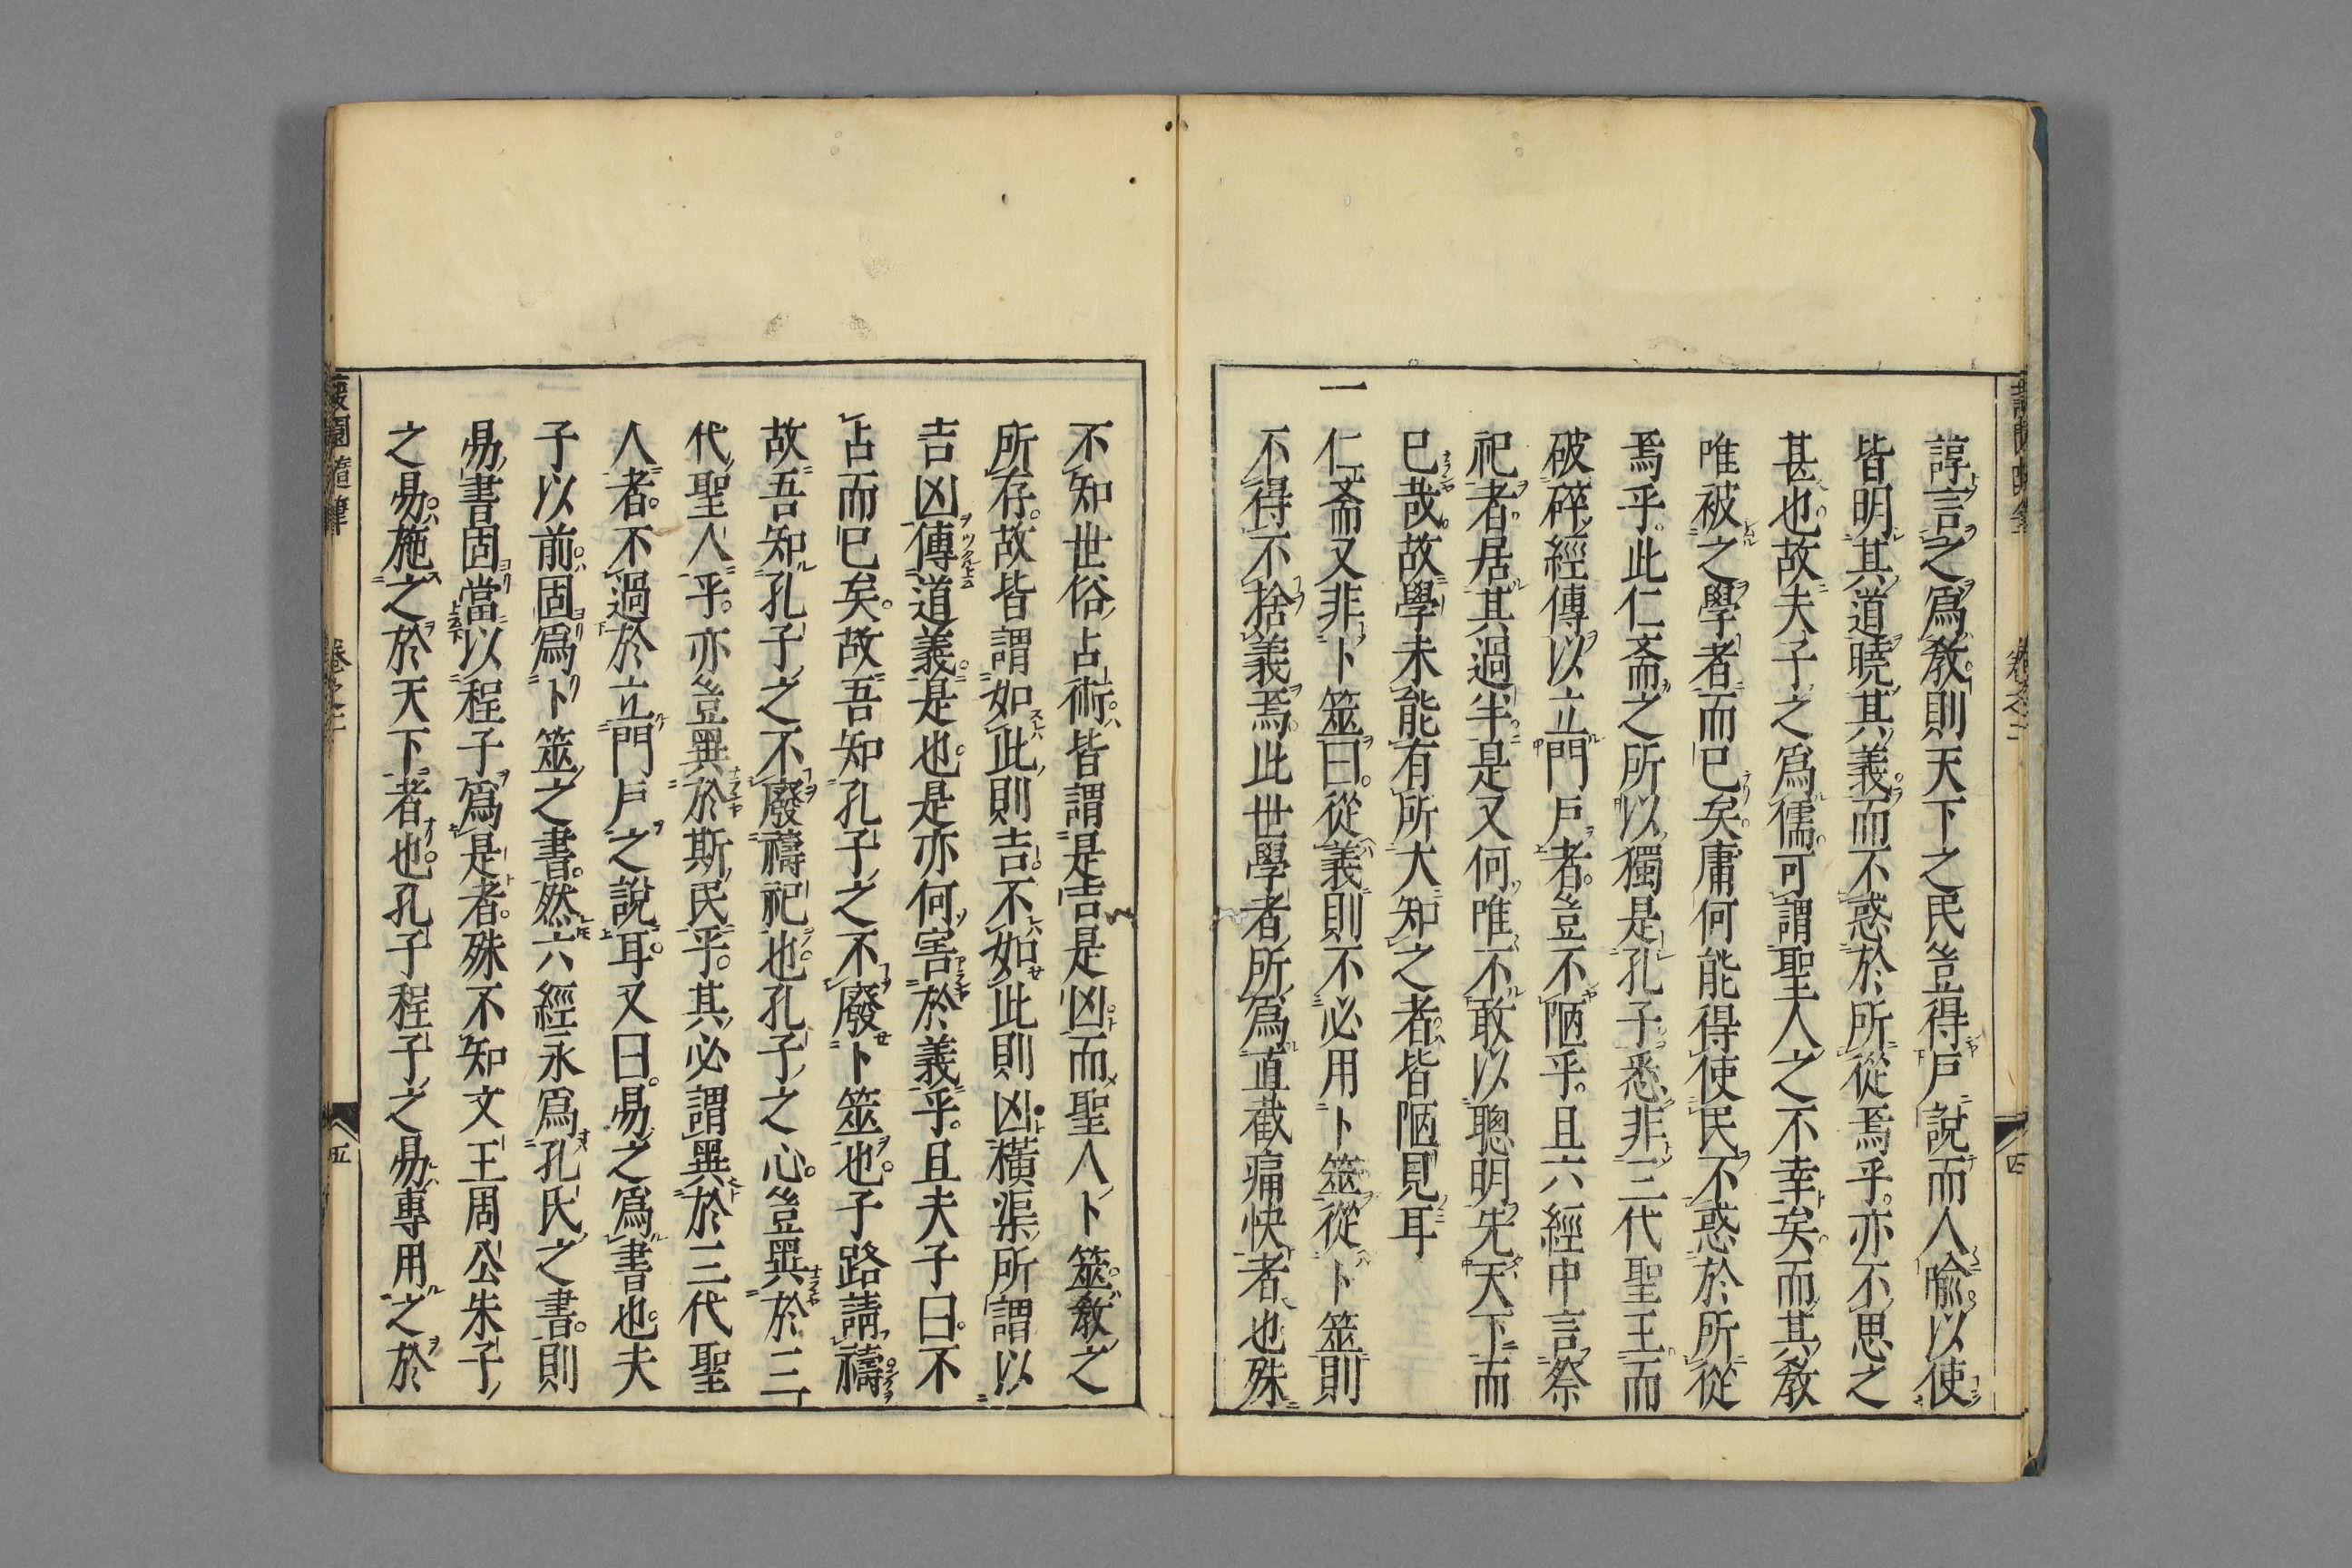 諄言之爲敎則天下之民豈得戶說而人喩以使
皆明其道曉其義而不惑於所從焉乎亦不思之
甚也故夫子之爲儒可謂聖人之不幸矣而其敎
唯被之學者而已矣庸何能得使民不惑於所從
焉乎此仁斎之所以獨是孔子悉非三代聖王而
破碎經傳以立門戶者豈不陋乎且六經中言祭
祀者居其過半是又何唯不敢以聰明先天下而
已哉故學未能有所大知之者皆陋見耳
一仁斎又非卜筮曰從義則不必用卜筮從卜筮則
不得不捨義焉此世學者所爲直截痛快者也殊
不知世俗占術皆謂是吉是凶而聖人卜筮敎之
所存故皆謂如此則吉不如此則凶橫渠所謂以
吉凶傳道義是也是亦何害於義乎且夫子曰不
占而已矣故吾知孔子之不廢卜筮也子路請禱
故吾知孔子之不廢禱祀也孔子之心豈異於三
代聖人乎亦豈異於斯民乎其必謂異於三代聖
人者不過於立門戶之說耳又曰易之爲書也夫
子以前固爲卜筮之書然六經永爲孔氏之書則
易書固當以程子爲是者殊不知文王周公朱子
之易施之於天下者也孔子程子之易專用之於
卷之二
四
五